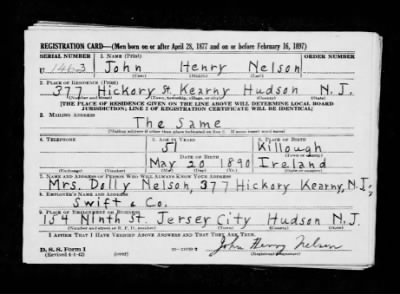 REGISTRATION CARD—(Men born on or after April 28, 1877 and on or before February 16, 1897)
SERIAL NUMBER 1. NAME (Print) ORDER NUMBER
U 1463 John Henry Nelson
(First) (Middle) (Last)
2. PLACE OF RESIDENCE (Print)
377 Hickory St. Kearny Hudson N.J.
(Number and street) (Town, township, village, or city) (County) (State)
[THE PLACE OF RESIDENCE GIVEN ON THE LINE ABOVE WILL DETERMINE LOCAL BOARD
JURISDICTION; LINE 2 OF REGISTRATION CERTIFICATE WILL BE IDENTICAL]
3. MAILING ADDRESS
The Same
[Mailing address if other than place indicated on line 2. If same insert word same]
4. TELEPHONE 5. AGE IN YEARS 6. PLACE OF BIRTH
51 Killough
DATE OF BIRTH (Town or county)
May 20 1890 Ireland
(Exchange) (Number) (Mo.) (Day) (Yr.) (State or country)
7. NAME AND ADDRESS OF PERSON WHO WILL ALWAYS KNOW YOUR ADDRESS
Mrs. Dolly Nelson, 377 Hickory Kearny, N.J.
8. EMPLOYER'S NAME AND ADDRESS
Swift & Co.
9. PLACE OF EMPLOYMENT OR BUSINESS
154 Ninth St. Jersey City Hudson N.J.
(Number and street or R. F. D. number) (Town) (County) (State)
I AFFIRM THAT I HAVE VERIFIED ABOVE ANSWERS AND THAT THEY ARE TRUE.
D. S. S. Form 1
(Revised 4-1-42) (over) John Henry Nelson
(Registrant's signature)